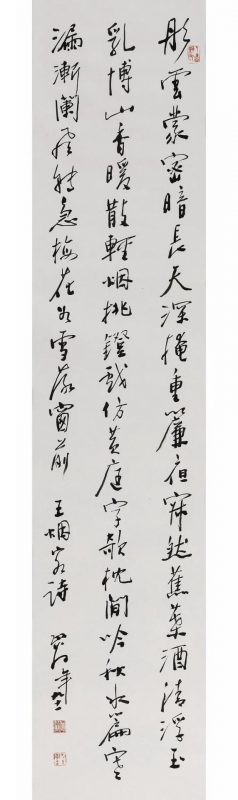 彤雲蒙密暗長天深掩重簾夜寂然蕉葉酒清浮玉
乳博山香暖散輕烟挑鐙戲仿黃庭字欹枕閒吟秋水篇寒
漏漸闌風轉急梅花如雪落窗前 王烟客詩